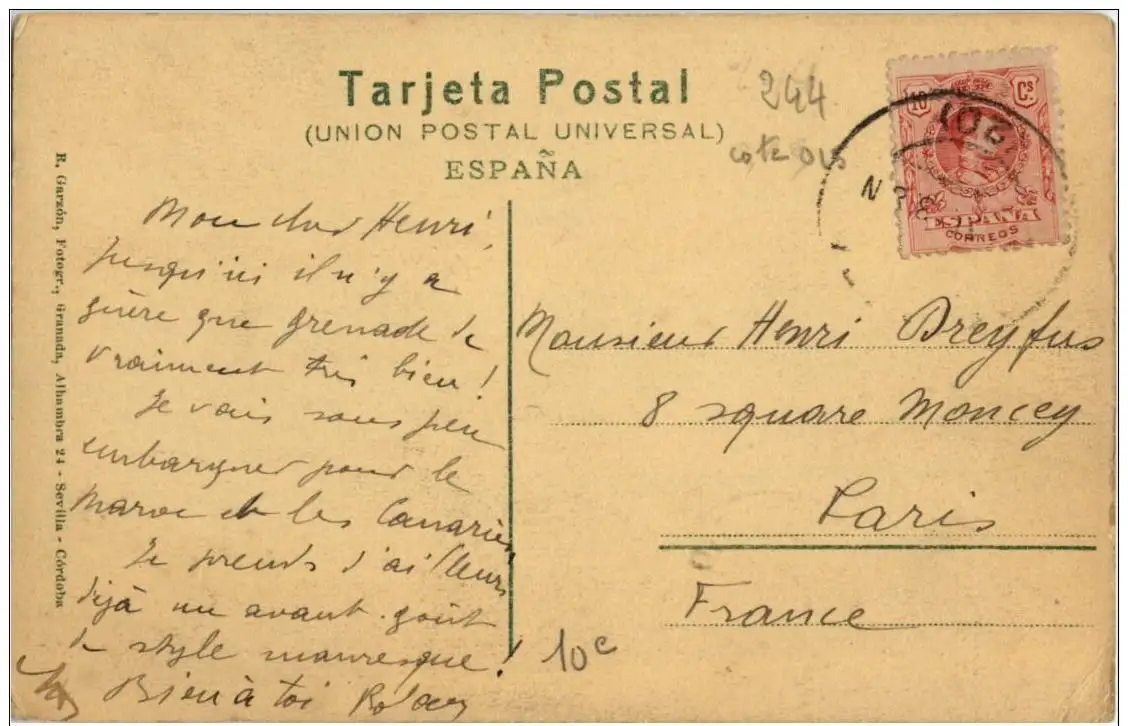 Tarjeta Postal
(UNION POSTAL UNIVERSAL)
ESPAÑA
244
10 Cs
ESPAÑA
CORREOS
R. Garzón, Fotogr., Granada, Alhambra 24 - Sevilla - Córdoba
Mon cher Henri,
Jusqu'ici il n'y a
guère que grenade de
vraiment très bien!
Je vais sous peu
embarquer pour le
Maroc et les Canaries
Je prends d'ailleurs
déjà un avant-goût
de style mauresque!
Bien à toi
Monsieur Henri Dreyfus
8 square Moncey
Paris
France
10c